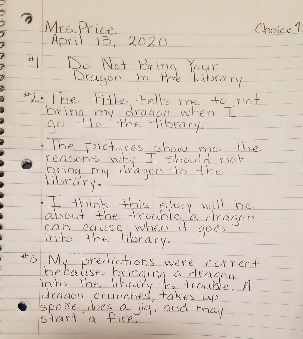 Mrs. Price
Choice 1
April 13, 2020
#1 Do Not Bring Your
Dragon to the Library
#2. The title tells me to not
bring my dragon when I
go to the library.
· The pictures show me the
reasons why I should not
bring my dragon to the
library.
· I think this story will be
about the trouble a dragon
can cause when it goes
into the library.
#3 My predictions were correct
because bringing a dragon
into the library is trouble. A
dragon crunches, takes up
space, does a jig, and may
start a fire.